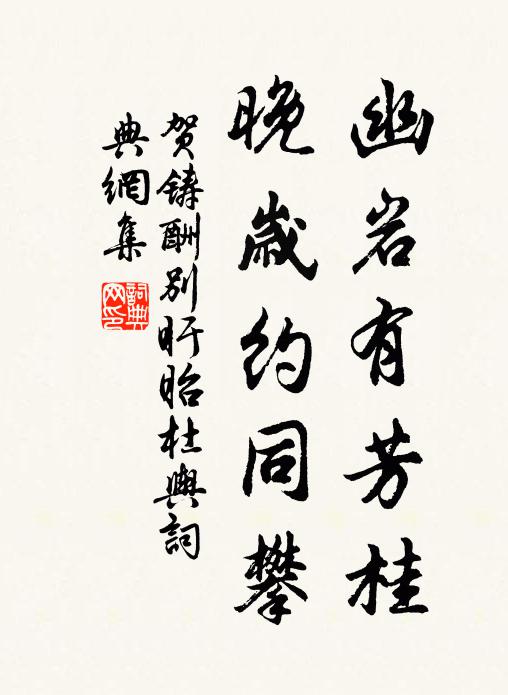 幽岩有芳桂
晚岁约同攀
贺铸酬别盱眙杜舆詞
典網集
詞典網印